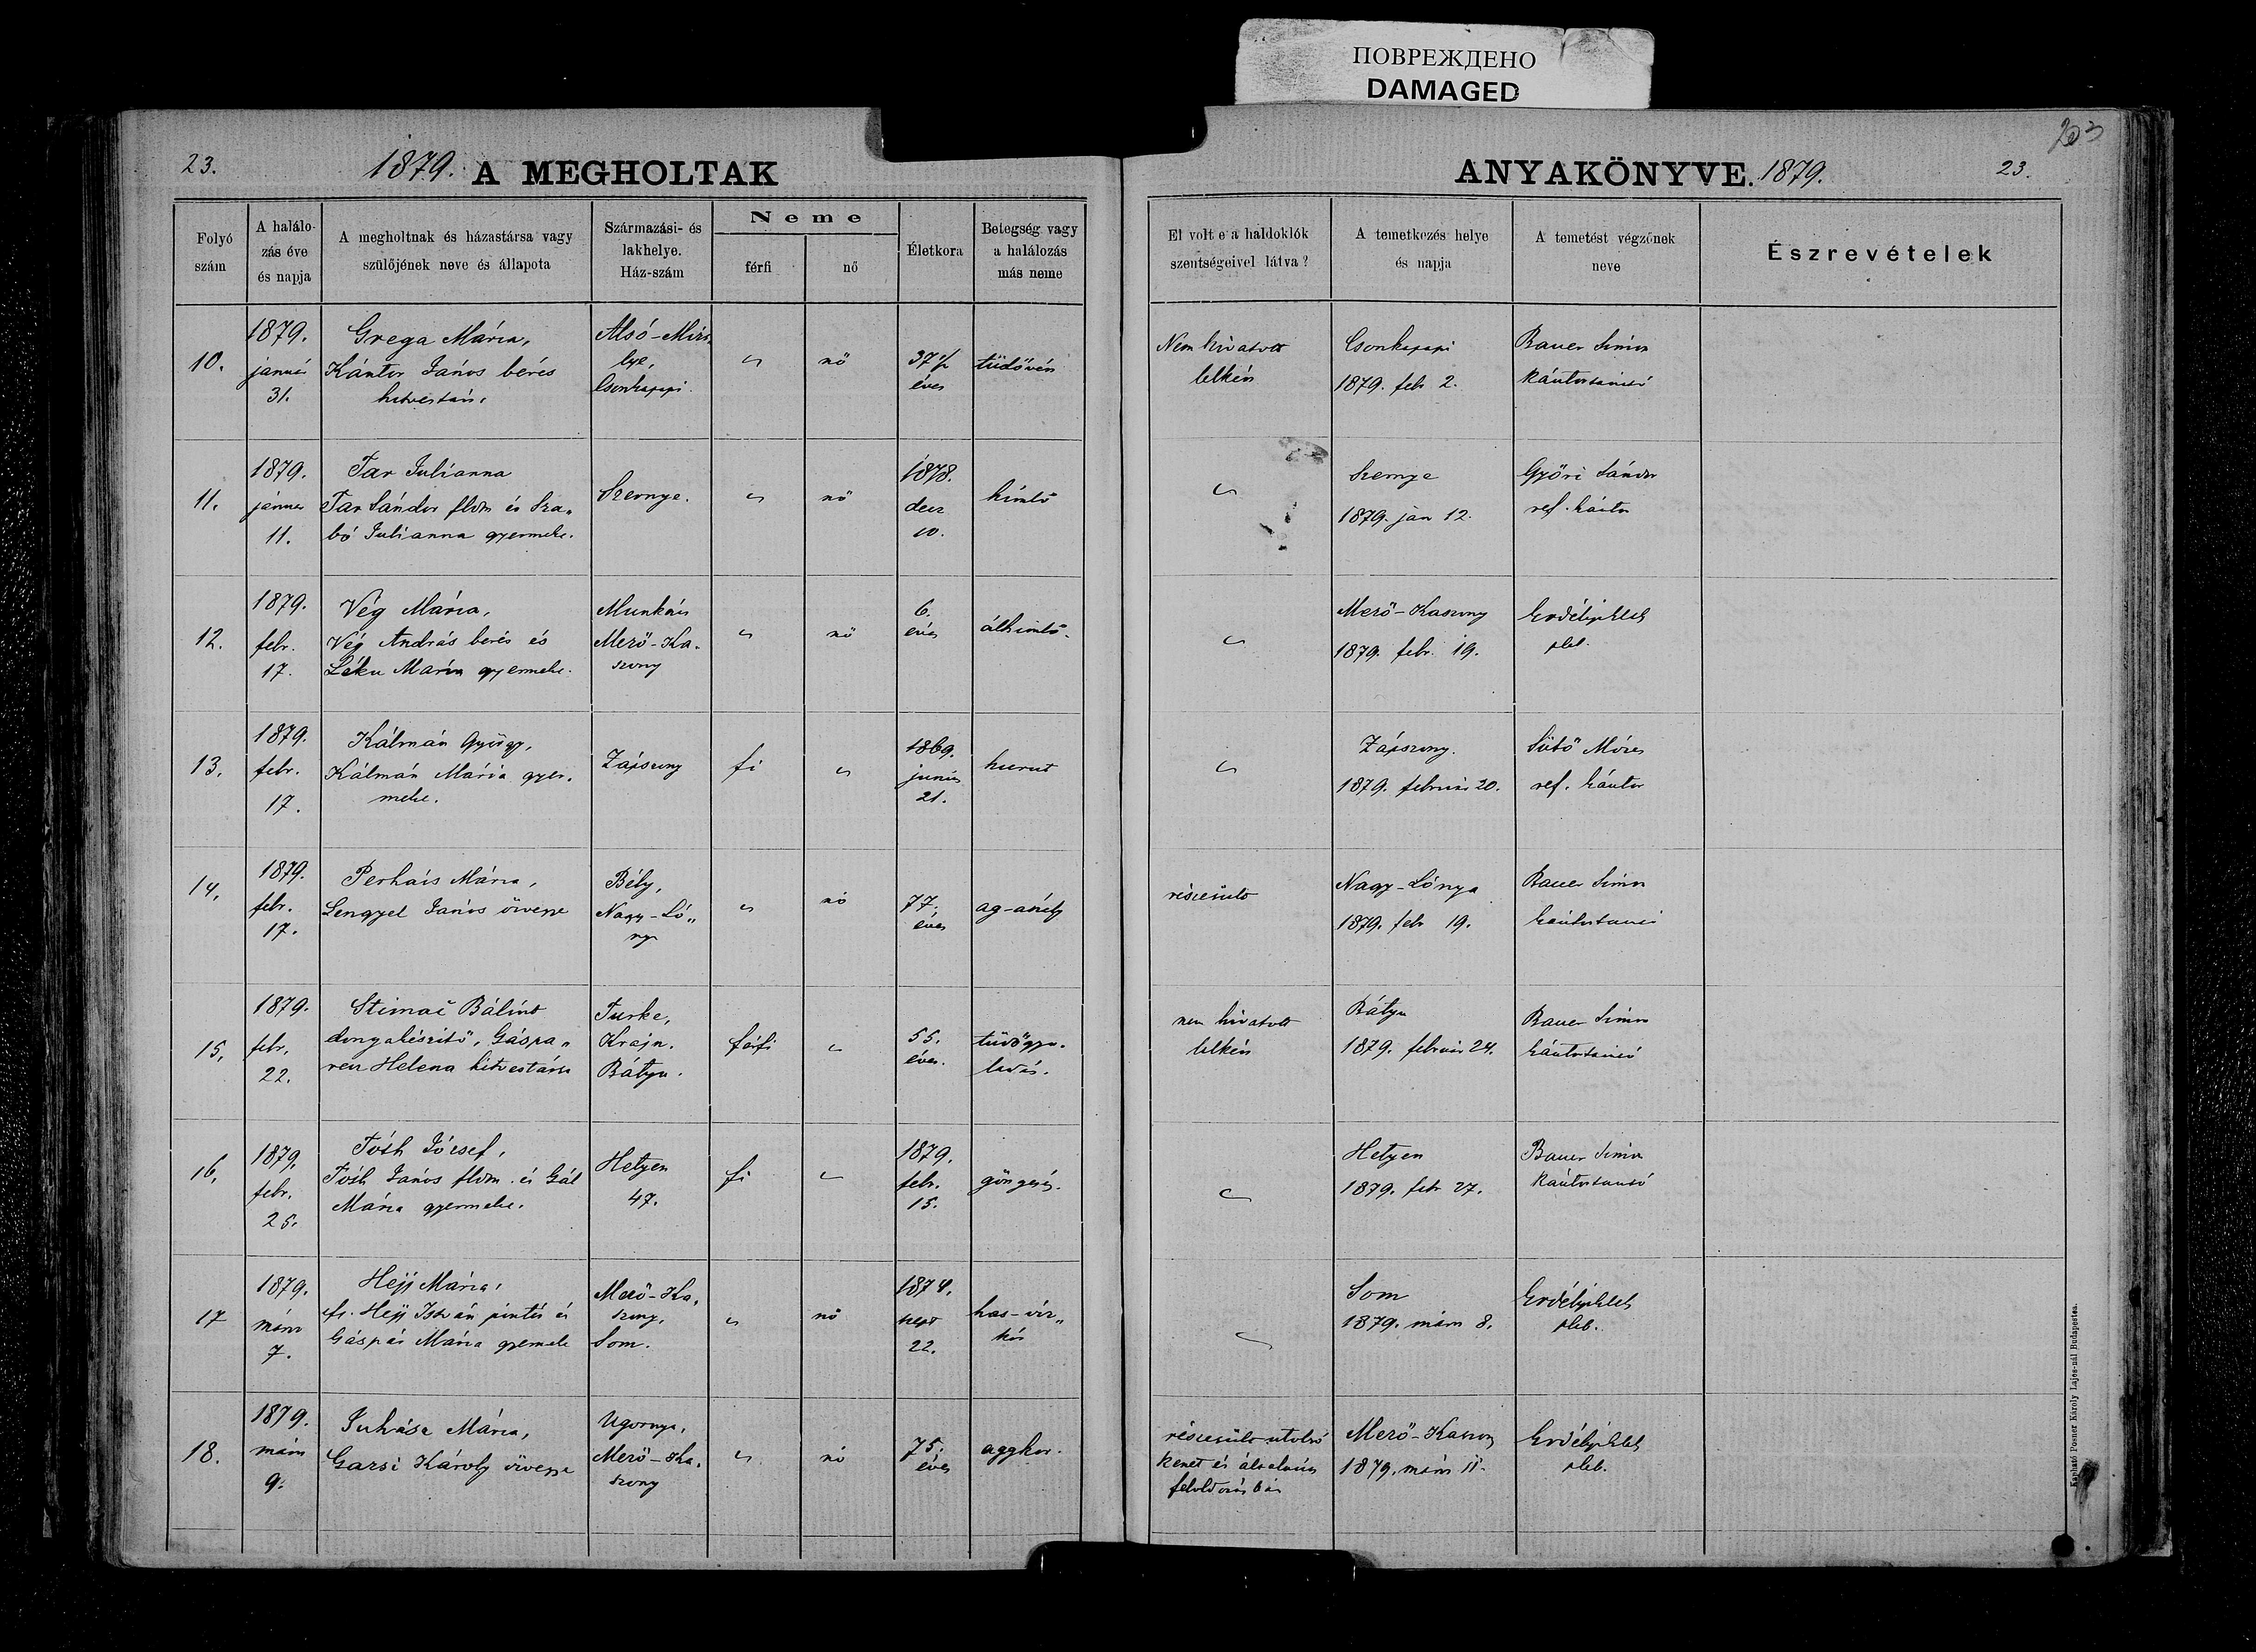 ПОВРЕЖДЕНО
DAMAGED
203
23.
1879. A MEGHOLTAK
ANYAKÖNYVE. 1879.
23.
Folyó szám
A halálo-zás éve és napja
A megholtnak és házastársa vagy szülőjének neve és állapota
Származási- és lakhelye. Ház-szám
Neme
férfi
nő
Életkora
Betegség vagy a halálozás más neme
El volt e a haldoklók szentségeivel látva?
A temetkezés helye és napja
A temetést végzőnek neve
Észrevételek
10.
1879.
január
31.
Grega Mária,
Kántor János béres
hitvestárs.
Alsó-
Csonkapapi.
nő
37
éves
tüdővész
Nem hivatott
lelkész
Csonkapapi
1879. feb 2.
Bauer Simon
kántortanító
11.
1879.
január
11.
Tar Julianna
Tar Sándor fldm és Sza„
bó Julianna gyermeke.
Szernye.
nő
1878.
decz
10.
himlő
Szernye
1879. ján 12.
Győri Sándor
ref. kántor
12.
1879.
febr.
17.
Vég Mária,
Vég András berés és
Léku Mária gyermeke.
Munkács
Mező-Ka-
szony
nő
6.
éves
álhimlő.
Mező-Kaszony
1879. febr. 19.
pleb.
13.
1879.
febr.
17.
Kálmán György,
Kálmán Mária gyer-
meke.
Zápszony
fi
1869.
junius
21.
hurut
Zápszony.
1879. február 20.
Sütő Mózes
ref. kántor
14.
1879.
febr.
17.
Perháis Mária,
Lengyel János özvegye
Bély,
Nagy-Ló„
nya
nő
77.
éves
részesült
Nagy-Lónya
1879. feb 19.
Bauer Simon
kántortanító
15.
1879.
febr.
22.
Stimać Bálint
dongakészítő, Gáspa„
Helena hitvestársa
Turke,
Krajn.
Bátyu.
férfi
55.
éves.
tüdőgyu-
ladás.
nem hivatott
lelkész
Bátyu
1879. február 24.
Bauer Simon
kántortanító
16.
1879.
febr.
25.
Tóth József,
Tóth János fldm. és Gál
Mária gyermeke.
Hetyen
47.
fi
1879.
febr.
15.
Hetyen
1879. febr 27.
Bauer Simon
kántortanító
17
1879.
márcz
7.
Hejj Mária,
ifj. Hejj István pintér és
Gáspár Mária gyermeke
Mező-Ka-
szony,
Som.
nő
1874.
sept
22.
Som
1879. márcz 8.
pleb.
18.
1879.
márcz
9.
Juhász Mária,
Garsi Károly özvegye
Ugornya,
Mező-Ka-
szony
nő
75.
éves
aggkor.
részesült utolsó
kenet és általános
feloldozásban
Mező-Kaszony
1879. márcz 11.
pleb.
Kapható Posner Károly Lajos-nál Budapesten.